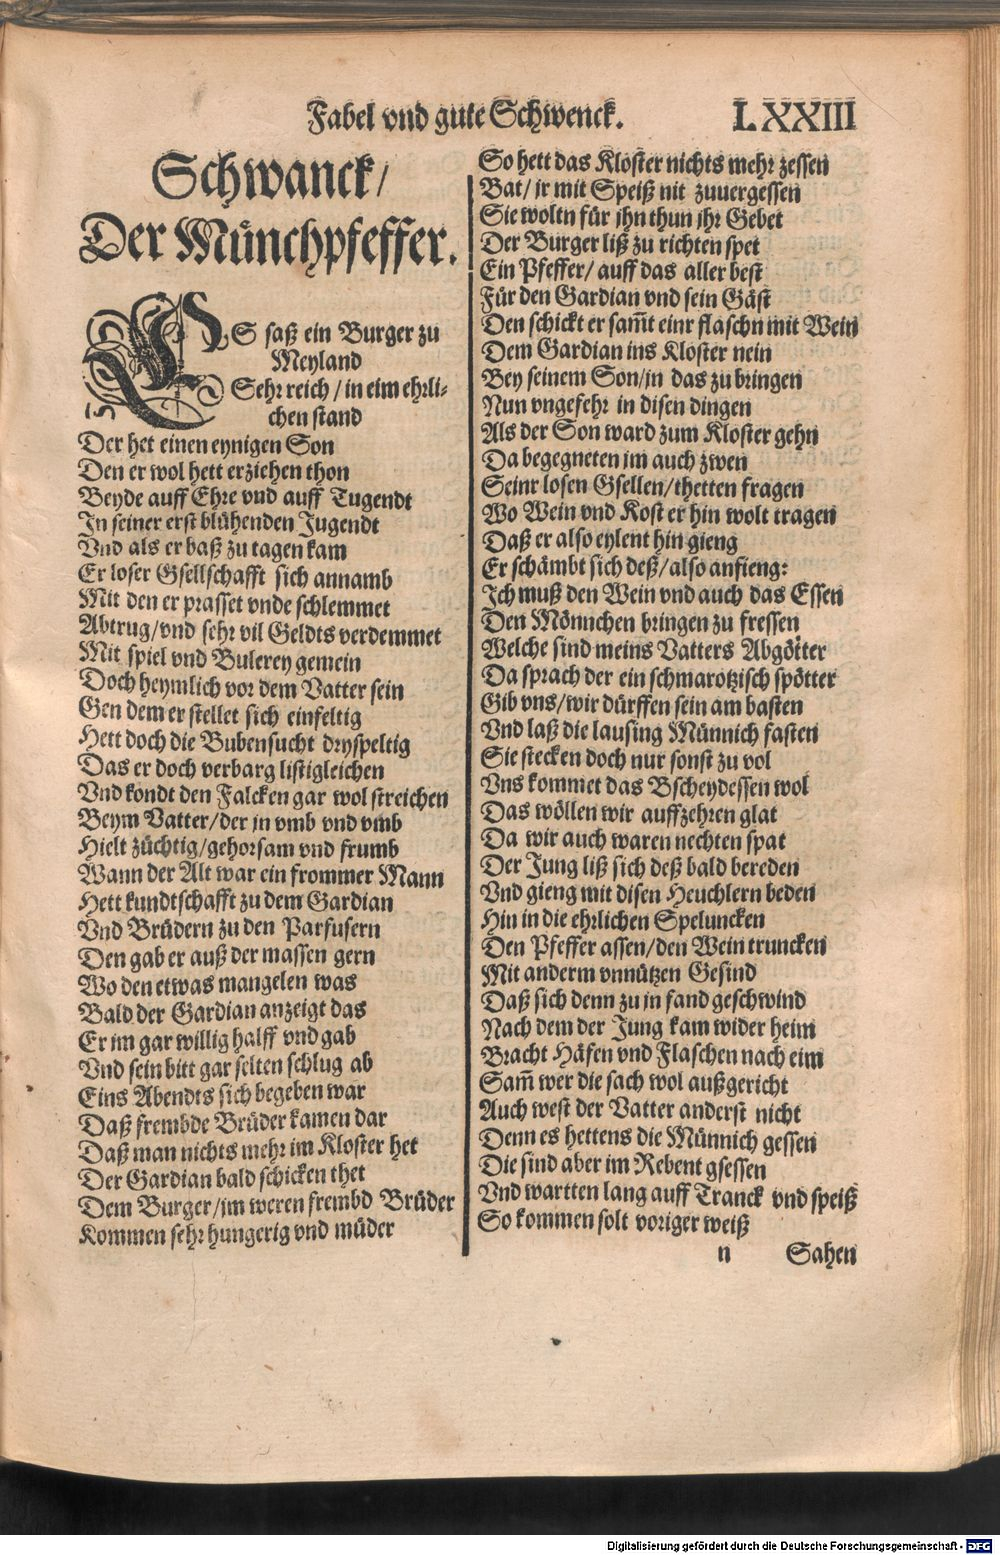 Fabel vnd gute Schwenck. LXXIII
Schwanck/
Der Münchpfeffer.
ES saß ein Burger zu
Meyland
Sehr reich / in eim ehrli-
chen stand
Der het einen eynigen Son
Den er wol hett erziehen thon
Beyde auff Ehre vnd auff Tugendt
In seiner erst blühenden Jugendt
Vnd als er baß zu tagen kam
Er loser Gsellschafft sich annamb
Mit den er prasset vnde schlemmet
Abtrug/vnd sehr vil Geldts verdemmet
Mit spiel vnd Bulerey gemein
Doch heymlich vor dem Vatter sein
Gen dem er stellet sich einfeltig
Hett doch die Bubensucht dryspeltig
Das er doch verbarg listigleichen
Vnd kondt den Falcken gar wol streichen
Beym Vatter/der jn vmb vnd vmb
Hielt züchtig/gehorsam vnd frumb
Wann der Alt war ein frommer Mann
Hett kundtschafft zu dem Gardian
Vnd Brüdern zu den Parfusern
Den gab er auß der massen gern
Wo den etwas mangelen was
Bald der Gardian anzeigt das
Er im gar willig halff vnd gab
Vnd sein bitt gar selten schlug ab
Eins Abendts sich begeben war
Daß frembde Brüder kamen dar
Daß man nichts mehr im Kloster het
Der Gardian bald schicken thet
Dem Burger/im weren frembd Brüder
Kommen sehr hungerig vnd müder
So hett das Kloster nichts mehr zessen
Bat/ ir mit Speiß nit zuuergessen
Sie woltn für jhn thun jhr Gebet
Der Burger liß zu richten spet
Ein Pfeffer/ auff das aller best
Für den Gardian vnd sein Gäst
Den schickt er sam̄t einr flaschn mit Wein
Dem Gardian ins Kloster nein
Bey seinem Son/in das zu bringen
Nun vngefehr in disen dingen
Als der Son ward zum Kloster gehn
Da begegneten im auch zwen
Seinr losen Gsellen/thetten fragen
Wo Wein vnd Kost er hin wolt tragen
Daß er also eylent hin gieng
Er schämbt sich deß/also anfieng:
Ich muß den Wein vnd auch das Essen
Den Mönnchen bringen zu fressen
Welche sind meins Vatters Abgötter
Da sprach der ein schmarotzisch spötter
Gib vns/wir dürffen sein am basten
Vnd laß die lausing Münnich fasten
Sie stecken doch nur sonst zu vol
Vns kommet das Bscheydessen wol
Das wöllen wir auffzehren glat
Da wir auch waren nechten spat
Der Jung liß sich deß bald bereden
Vnd gieng mit disen Heuchlern beden
Hin in die ehrlichen Speluncken
Den Pfeffer assen/den Wein truncken
Mit anderm vnnützen Gesind
Daß sich denn zu in fand geschwind
Nach dem der Jung kam wider heim
Bracht Häfen vnd Flaschen nach eim
Sam̄ wer die sach wol außgericht
Auch west der Vatter anderst nicht
Denn es hettens die Münnich gessen
Die sind aber im Rebent gsessen
Vnd wartten lang auff Tranck vnd speiß
So kommen solt voriger weiß
n Sahen
Digitalisierung gefördert durch die Deutsche Forschungsgemeinschaft - DFG